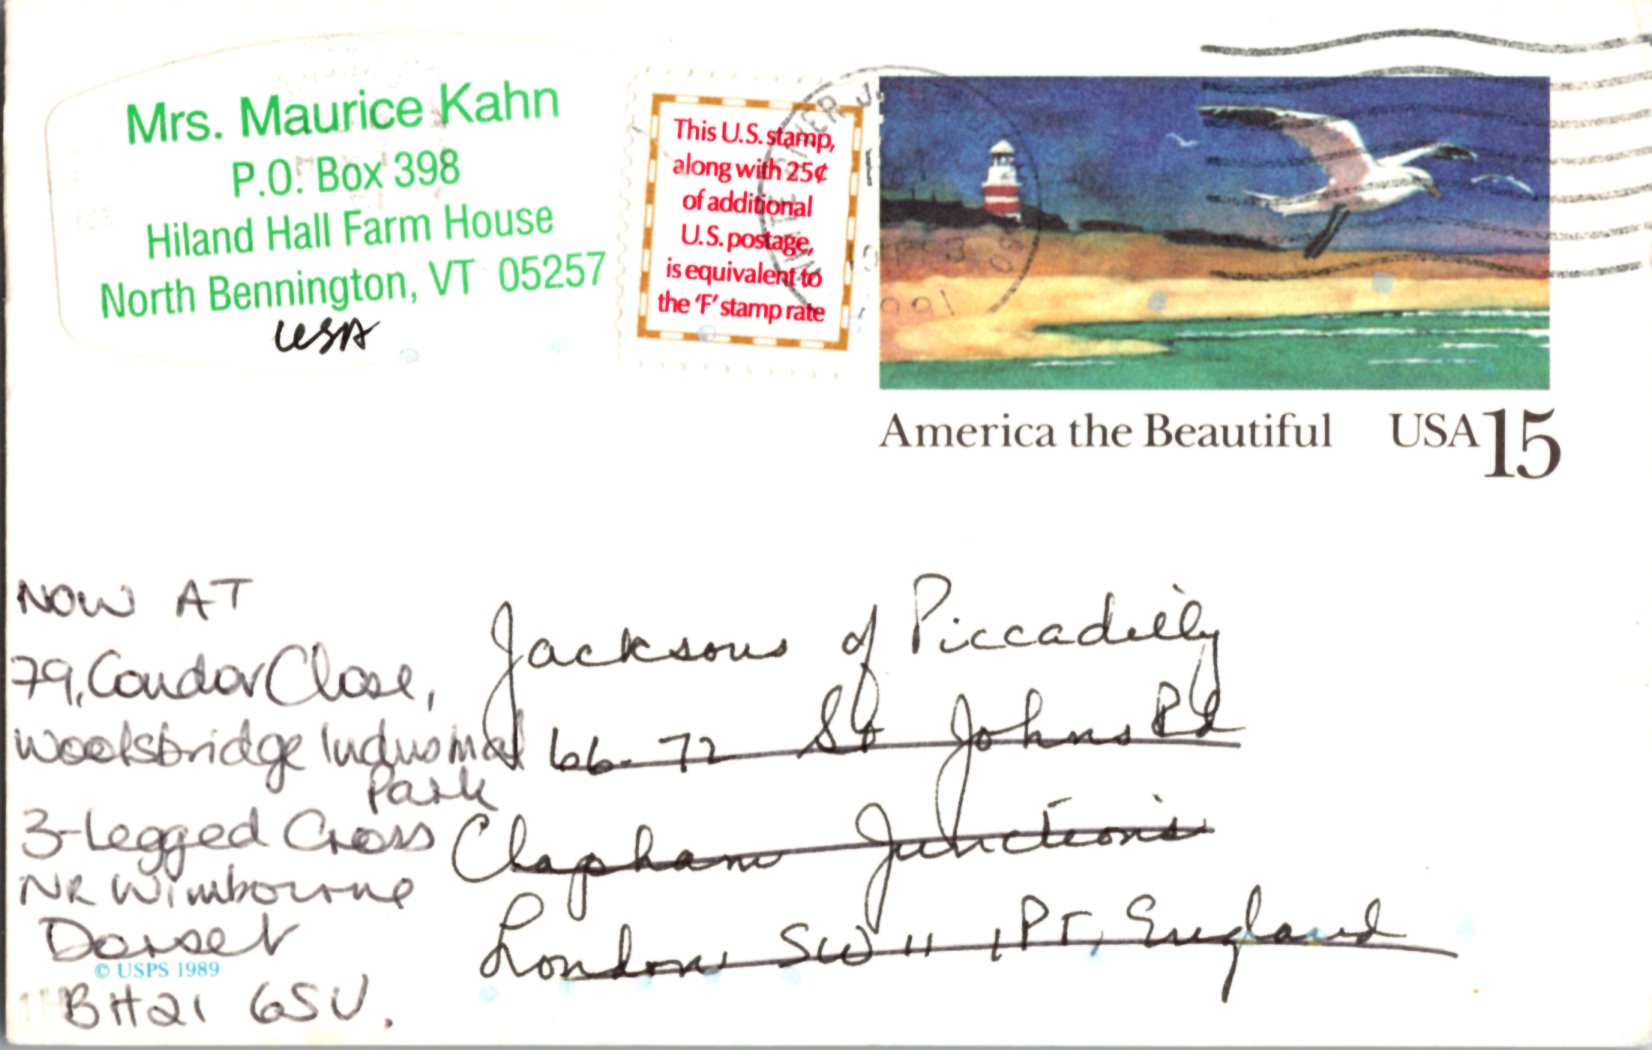 Mrs. Maurice Kahn
P.O. Box 398
Hiland Hall Farm House
North Bennington, VT 05257
USA
This U.S. stamp,
along with 25¢
of additional
U.S. postage,
is equivalent to
the 'F' stamp rate
1991
America the Beautiful USA 15
NOW AT
79, Condor Close,
Woolsbridge Industrial
Park
3-Legged Cross
NR Wimbourne
Dorset
BH21 6SU.
Jacksons of Piccadilly
66-72 St Johns Rd
Clapham Junctions
London SW 11 1PT, England
© USPS 1989